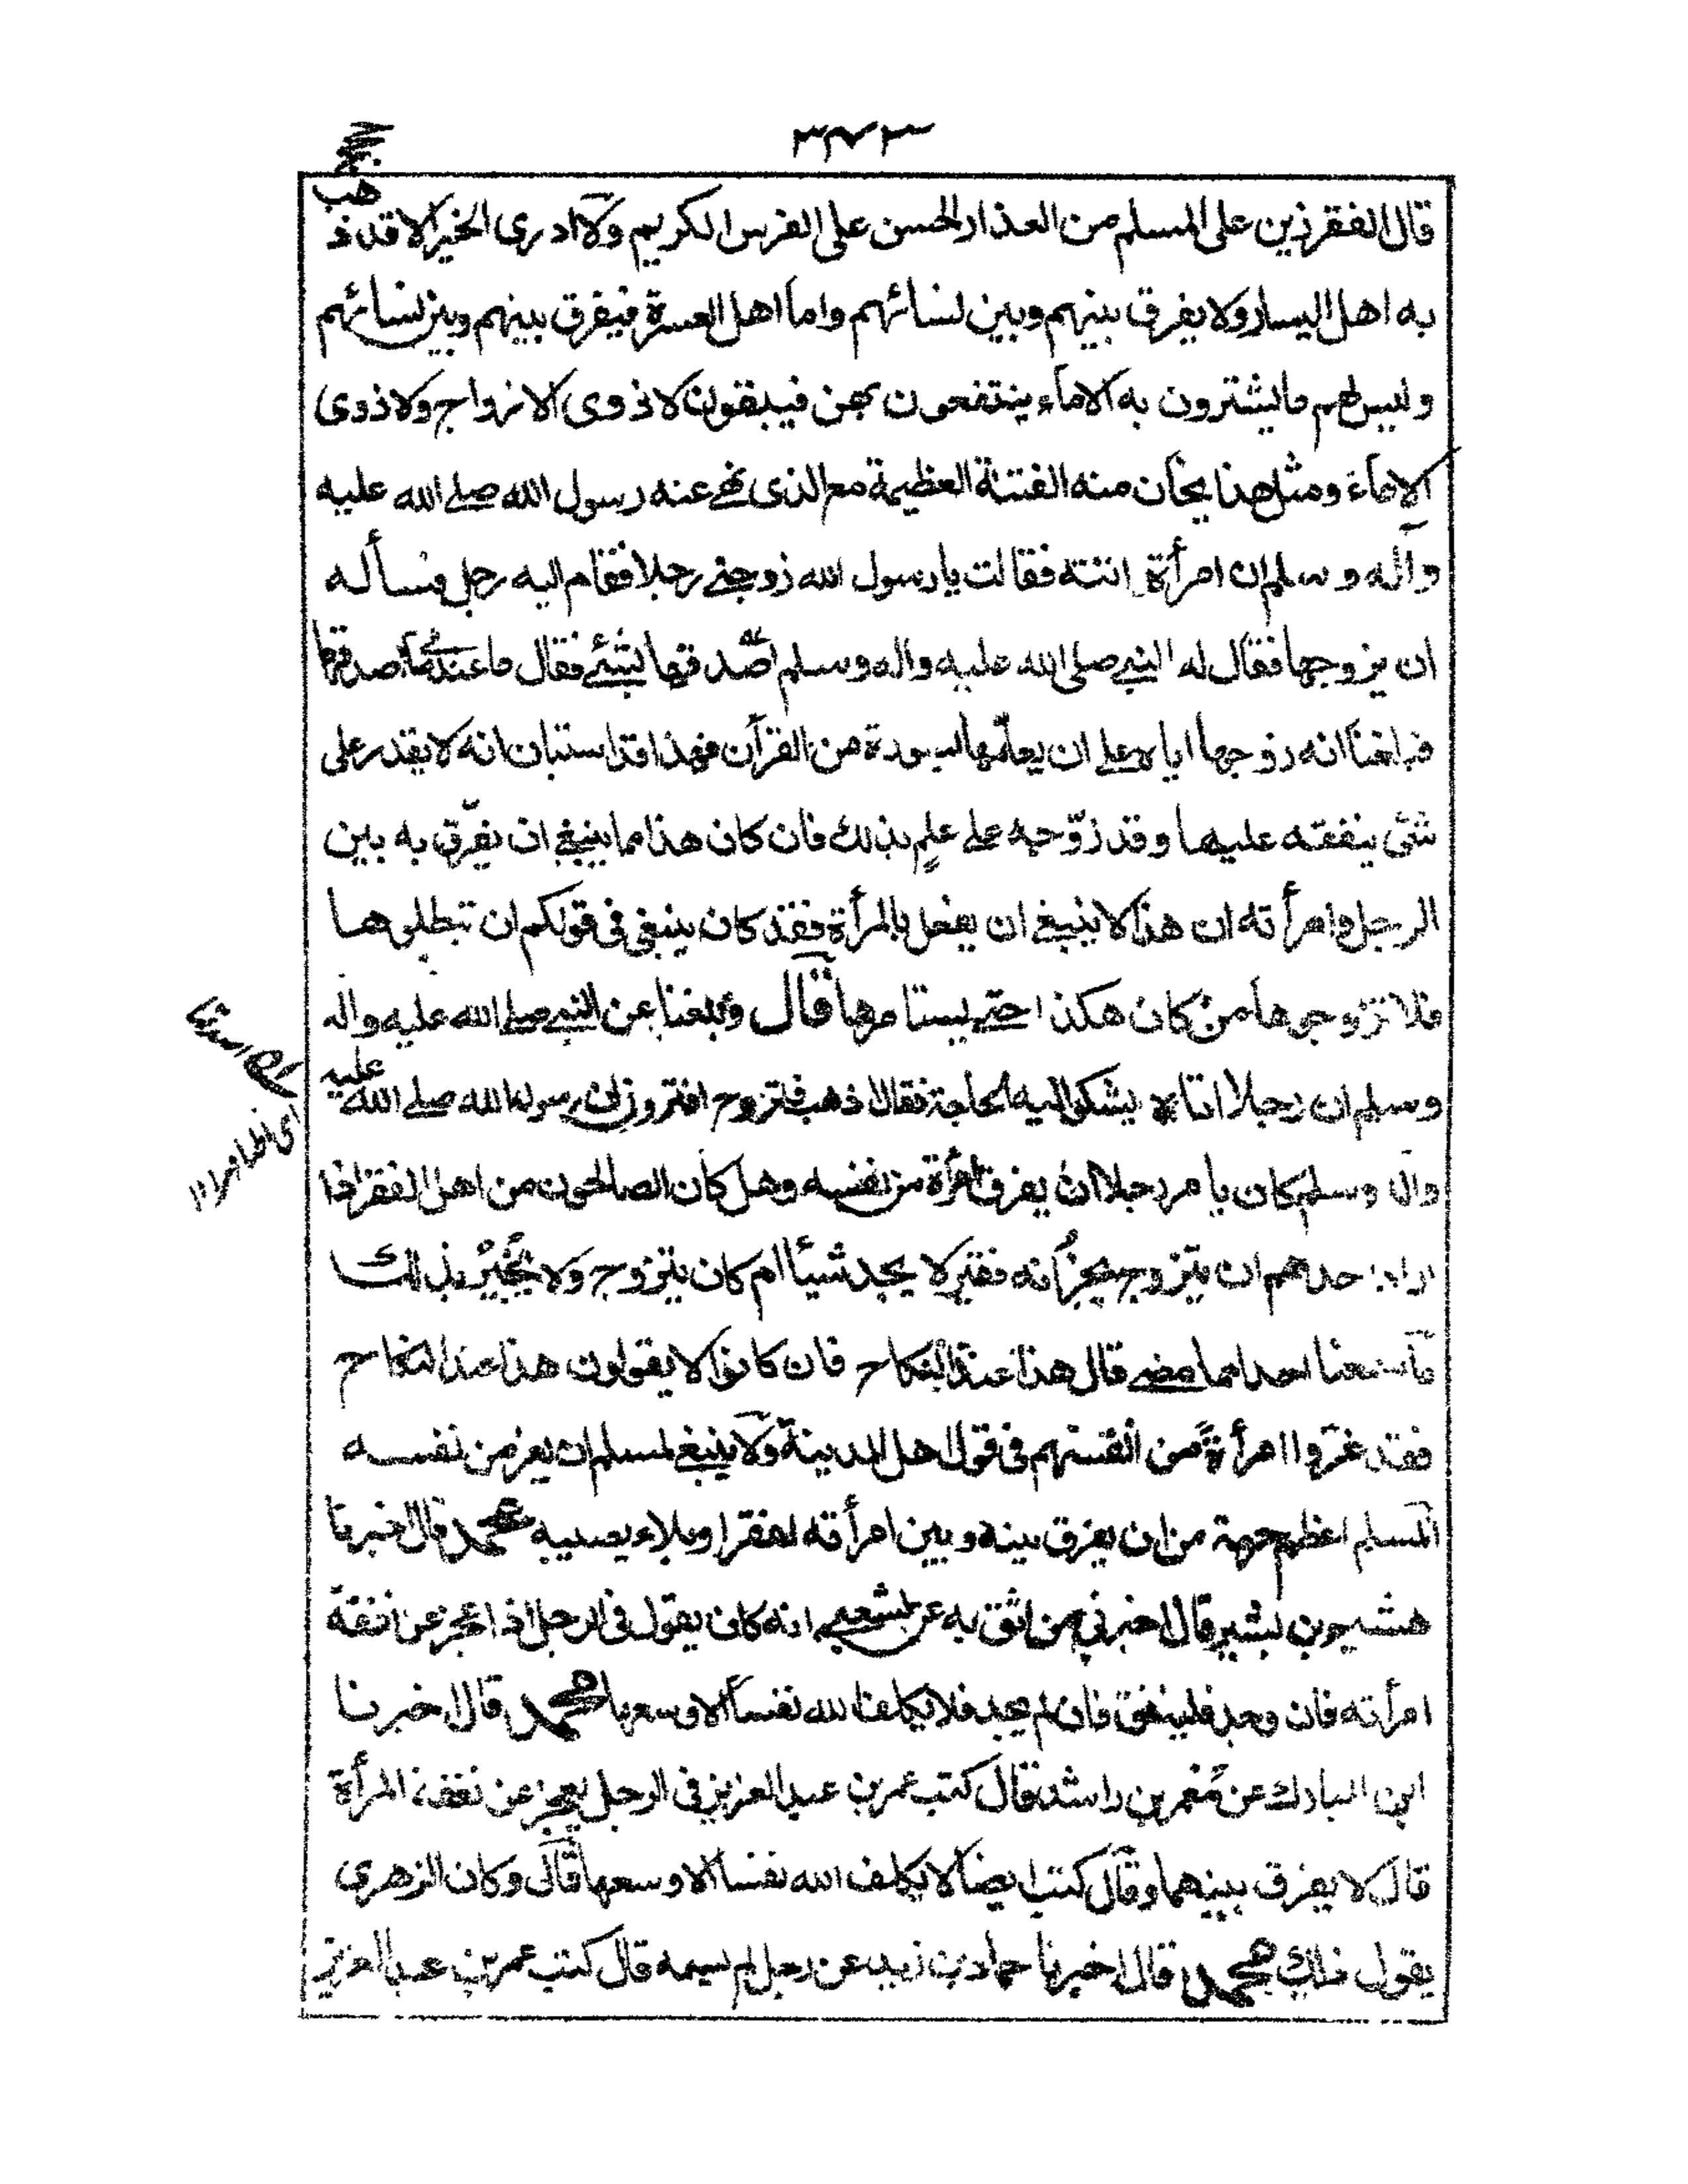 ٣٧٣
قال الفقر زين على المسلم من العذار الحسن على الفرس الكريم ولا ادرى الخير الا قد ذهب
به اهل اليسار ولا يفرق بينهم وبين نسائهم واما اهل العسرة فيفرق بينهم وبين نسائهم
وليس لهم ما يشترون به الاماء ينتفعون بهن فيبقون لا ذوى الازواج ولا ذوى
الاماء ومثل هذا يخاف منه الفتنة العظيمة مع الذى نهى عنه رسول الله صلى الله عليه
وآله وسلم ان امرأة اتته فقالت يا رسول الله زوجنى رجلا فقام اليه رجل فسأله
ان يزوجها فقال له النبى صلى الله عليه واله وسلم اصدقها بشئ فقال ما عندى ما اصدقها
فبلغنا انه زوجها اياه على ان يعلمها سورة من القرآن فهذا قد استبان انه لا يقدر على
شئ ينفقه عليها وقد زوّجه على علم بذلك فان كان هذا مما ينبغى ان يفرّق به بين
الرجل وامرأته ان هذا لا ينبغى ان يفعل بالمرأة فقد كان ينبغى فى قولكم ان تبطلوها
فلا تزوجوها من كان هكذا حتى يستامرها قال وبلغنا عن النبى صلى الله عليه واله
وسلم ان رجلا اتاه يشكو اليه الحاجة فقال اذهب فتزوج افترون ان رسول الله صلى الله عليه
واله وسلم كان يامر رجلا ان يغر امرأة من نفسه وهل كان الصالحون من اهل الفقر اذا
اراد احدهم ان يتزوج يخبر انه فقير لا يجد شيئا ام كان يتزوج ولا يخبر بذلك
ما سمعنا احدا مما مضى قال هذا عند النكاح فان كانوا لا يقولون هذا عند النكاح
فقد غرّوا امرأة من انفسهم فى قول اهل المدينة ولا ينبغى لمسلم ان يغر من نفسه
المسلم اعظم جهة من ان يفرق بينه وبين امرأته لفقر او بلاء يصيبه محمد قال اخبرنا
هشيم بن بشير قال اخبرنى من اثق به عن الشعبى انه كان يقول فى الرجل اذا عجز عن نفقة
امرأته فان وجد فلينفق فان لم يجد فلا يكلف الله نفسا الا وسعها محمد قال اخبرنا
ابن المبارك عن معمر بن راشد قال كتب عمر بن عبد العزيز فى الرجل يعجز عن نفقة المرأة
قال لا يفرق بينهما وقال كتب ايضا لا يكلف الله نفسا الا وسعها قال وكان الزهرى
يقول ذلك محمد قال اخبرنا حماد بن زيد عن رجل لم يسمه قال كتب عمر بن عبد العزيز